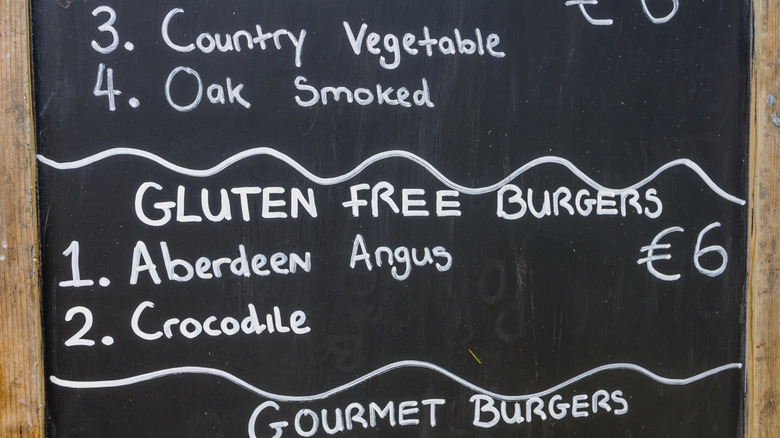 3. Country Vegetable
4. Oak Smoked
GLUTEN FREE BURGERS
1. Aberdeen Angus €6
2. Crocodile
GOURMET BURGERS